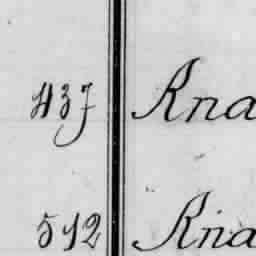 437 Kna
592 Kna